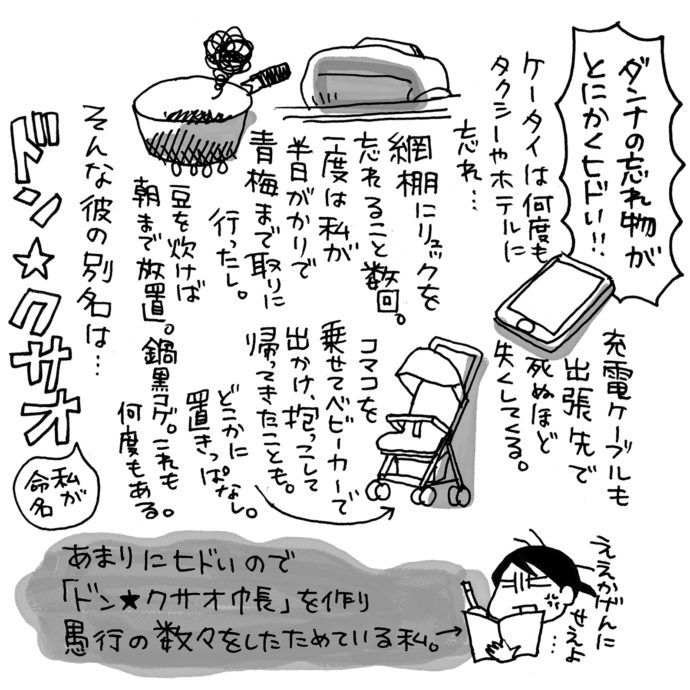 ダンナの忘れ物が
とにかくヒドい!!
ケータイは何度も
タクシーやホテルに
忘れ…
充電ケーブルも
出張先で
死ぬほど
失くしてくる。
網棚にリュックを
忘れること数回。
一度は私が
半日がかりで
青梅まで取りに
行ったし。
コマコを
乗せてベビーカーで
出かけ、抱っこして
帰ってきたことも。
どこかに
置きっぱなし。
豆を炊けば
朝まで放置。鍋黒コゲ。これも
何度もある。
そんな彼の別名は…
ドン★クサオ
私が
命名
あまりにヒドいので
「ドン★クサオ帳」を作り
愚行の数々をしたためている私。→
ええかげんに
せえよ…